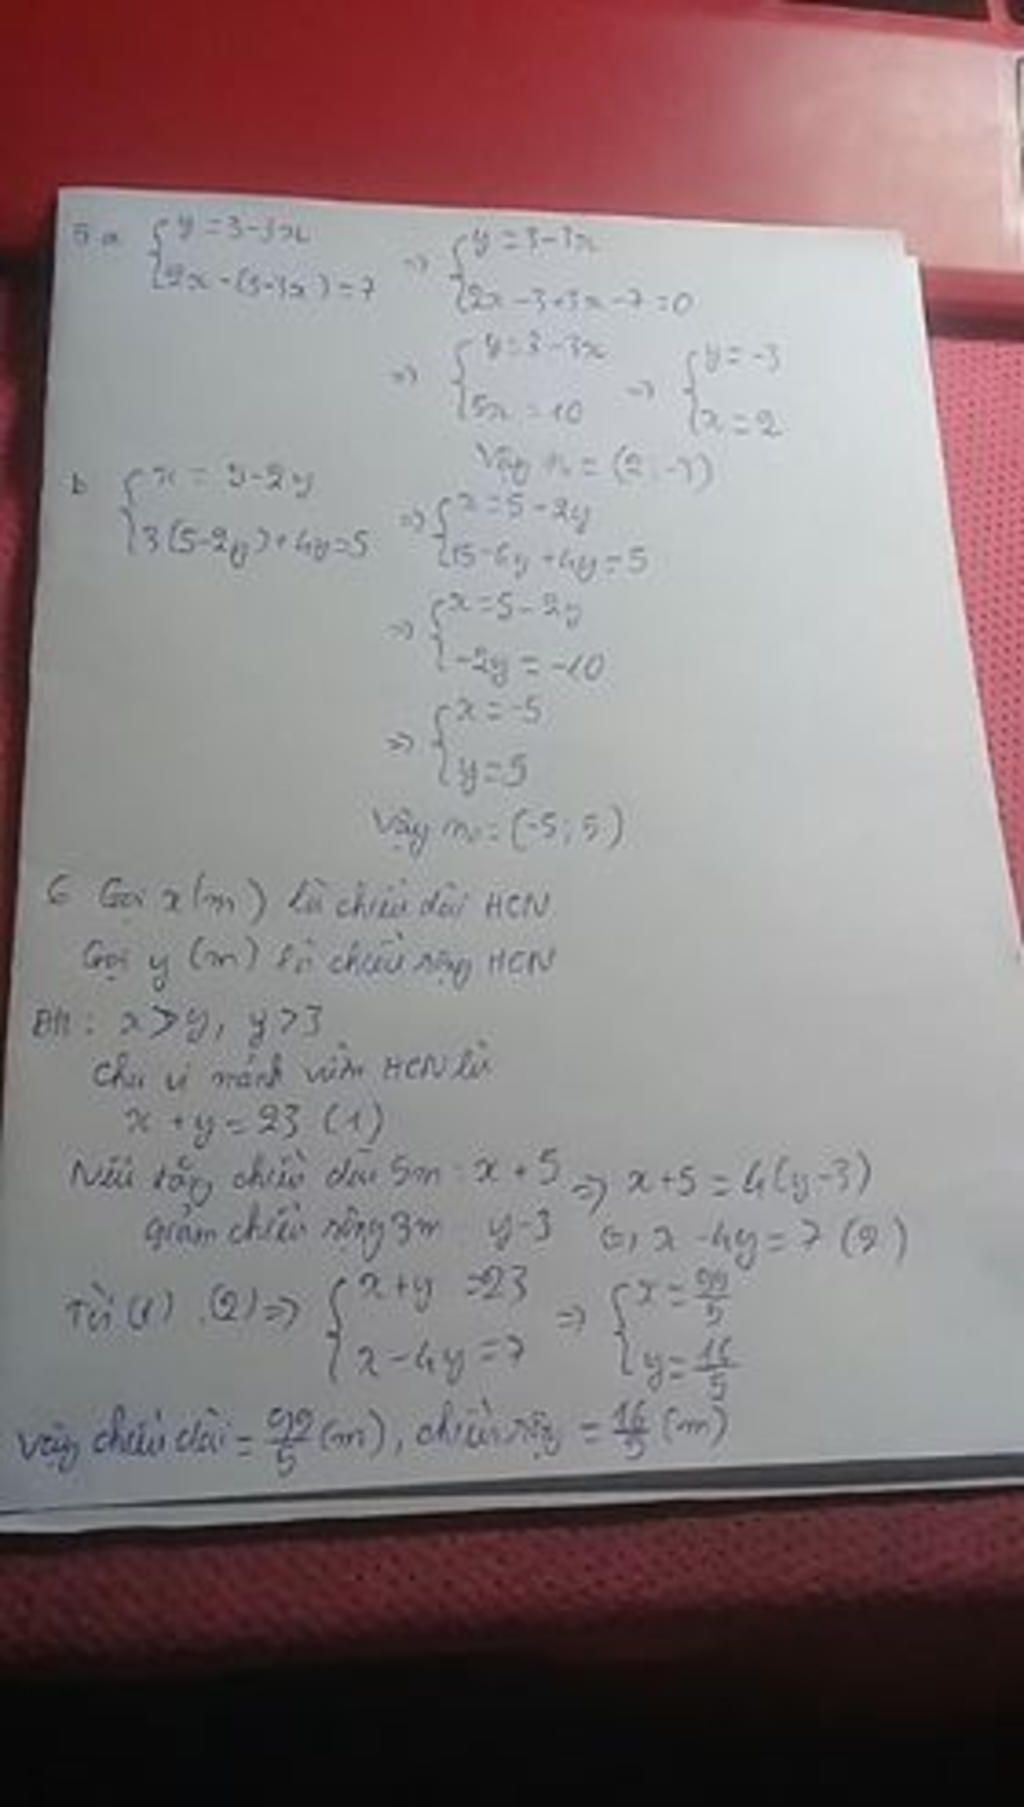 5 a { y = 3 - 3x => { y = 3 - 3x
2x - (3 - 3x) = 7 2x - 3 + 3x - 7 = 0
=> { y = 3 - 3x => { y = -3
5x = 10 x = 2
Vậy n0 = (2; -3)
b { x = 5 - 2y => { x = 5 - 2y
3(5 - 2y) + 4y = 5 15 - 6y + 4y = 5
=> { x = 5 - 2y
-2y = -10
=> { x = -5
y = 5
Vậy n0 = (-5; 5)
6 Gọi x (m) là chiều dài HCN
Gọi y (m) là chiều rộng HCN
ĐK: x > y, y > 3
Chu vi mảnh vườn HCN là
x + y = 23 (1)
Nếu tăng chiều dài 5m x + 5 => x + 5 = 4(y - 3)
giảm chiều rộng 3m y - 3 x - 4y = 7 (2)
Từ (1) (2) => { x + y = 23 => { x = 99/5
x - 4y = 7 y = 16/5
Vậy chiều dài = 99/5 (m), chiều rộng = 16/5 (m)